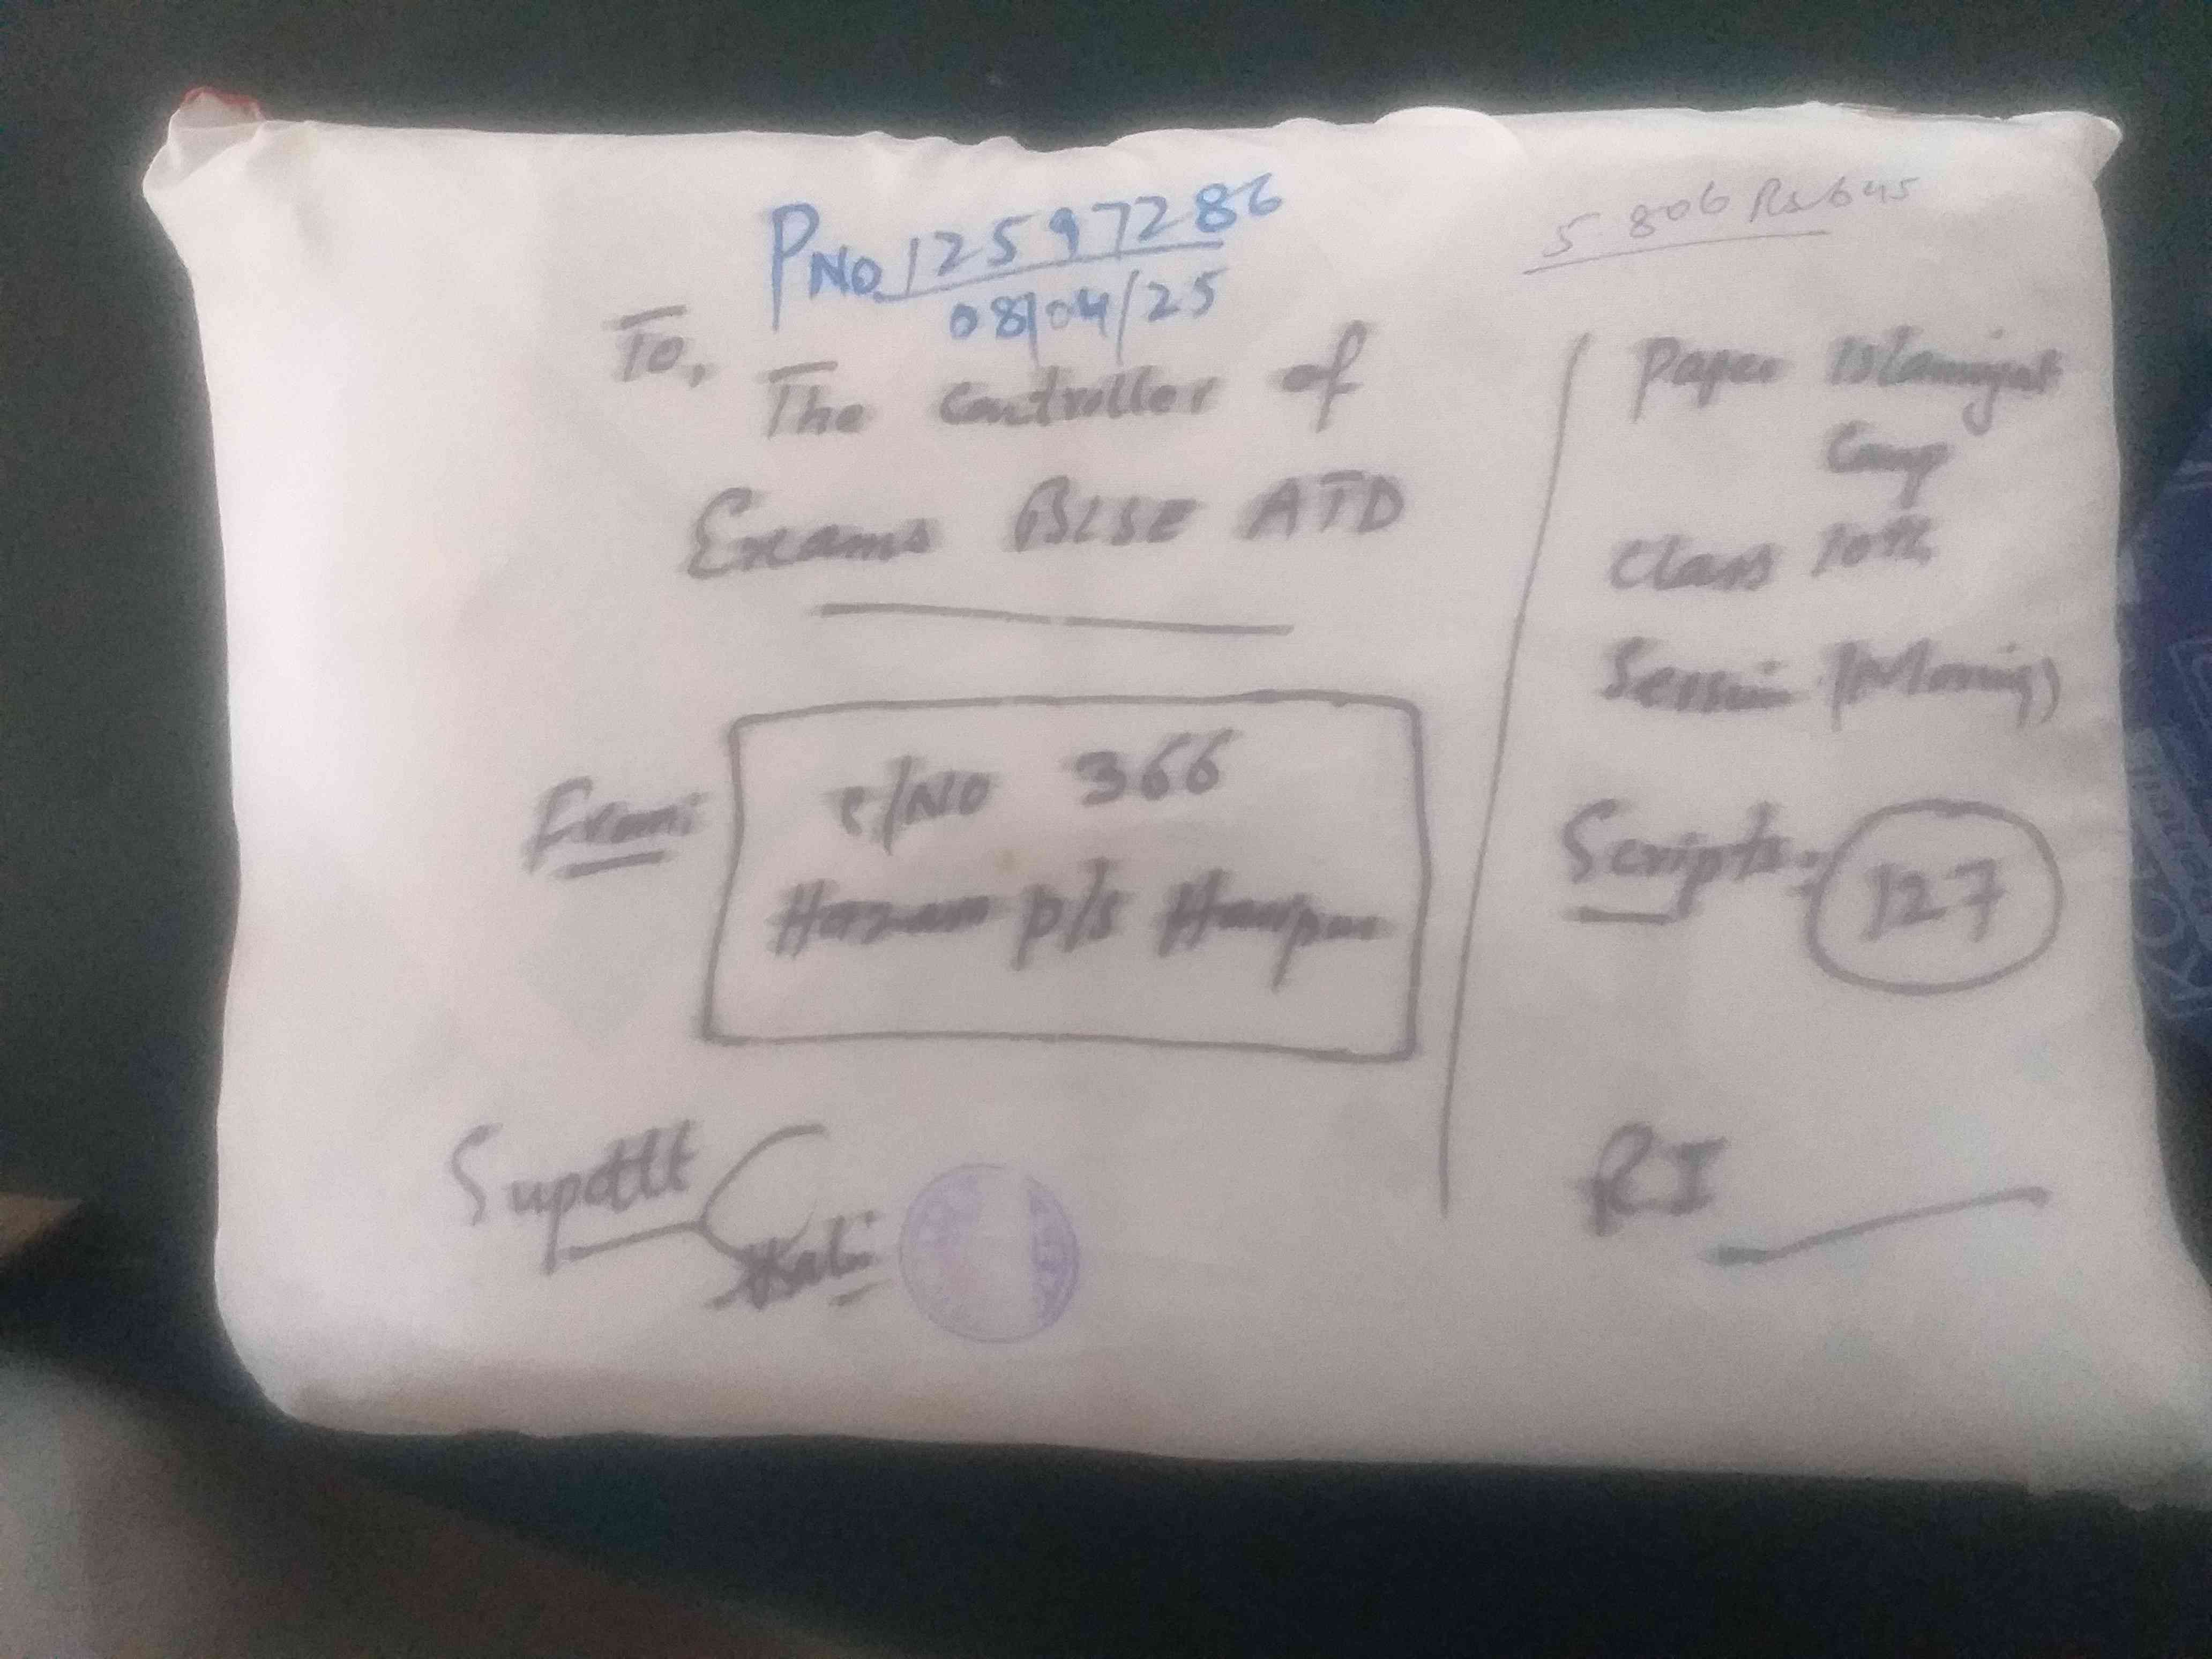 PNO. 12597286
08/04/25
5 806 Rs 645
To,
The Controller of
Exams BISE ATD
From:
C/NO 366
P/S
Supdtt
Paper Islamiyat
Comp
Class 10th
Session (Morning)
Scripts: 127
RI